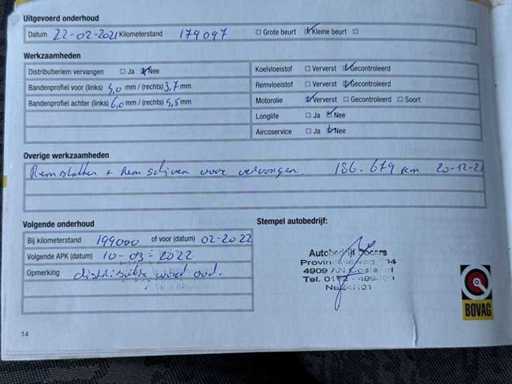 Uitgevoerd onderhoud
Datum 22-02-2021 Kilometerstand 179097 □ Grote beurt ☑ Kleine beurt □
Werkzaamheden
Distributieriem vervangen □ Ja ☑ Nee
Bandenprofiel voor (links) 5,0 mm / (rechts) 3,7 mm
Bandenprofiel achter (links) 6,0 mm / (rechts) 5,5 mm
Koelvloeistof □ Ververst ☑ Gecontroleerd
Remvloeistof □ Ververst ☑ Gecontroleerd
Motorolie ☑ Ververst □ Gecontroleerd □ Soort
Longlife □ Ja ☑ Nee
Aircoservice □ Ja ☑ Nee
Overige werkzaamheden
Remblokken + Remschijven voor vervangen 186.679 km 20-12-21
Volgende onderhoud
Bij kilometerstand 199000 of voor (datum) 02-2022
Volgende APK (datum) 10-03-2022
Opmerking distributie
Stempel autobedrijf:
Autobedrijf
4909
Tel.
BOVAG
14